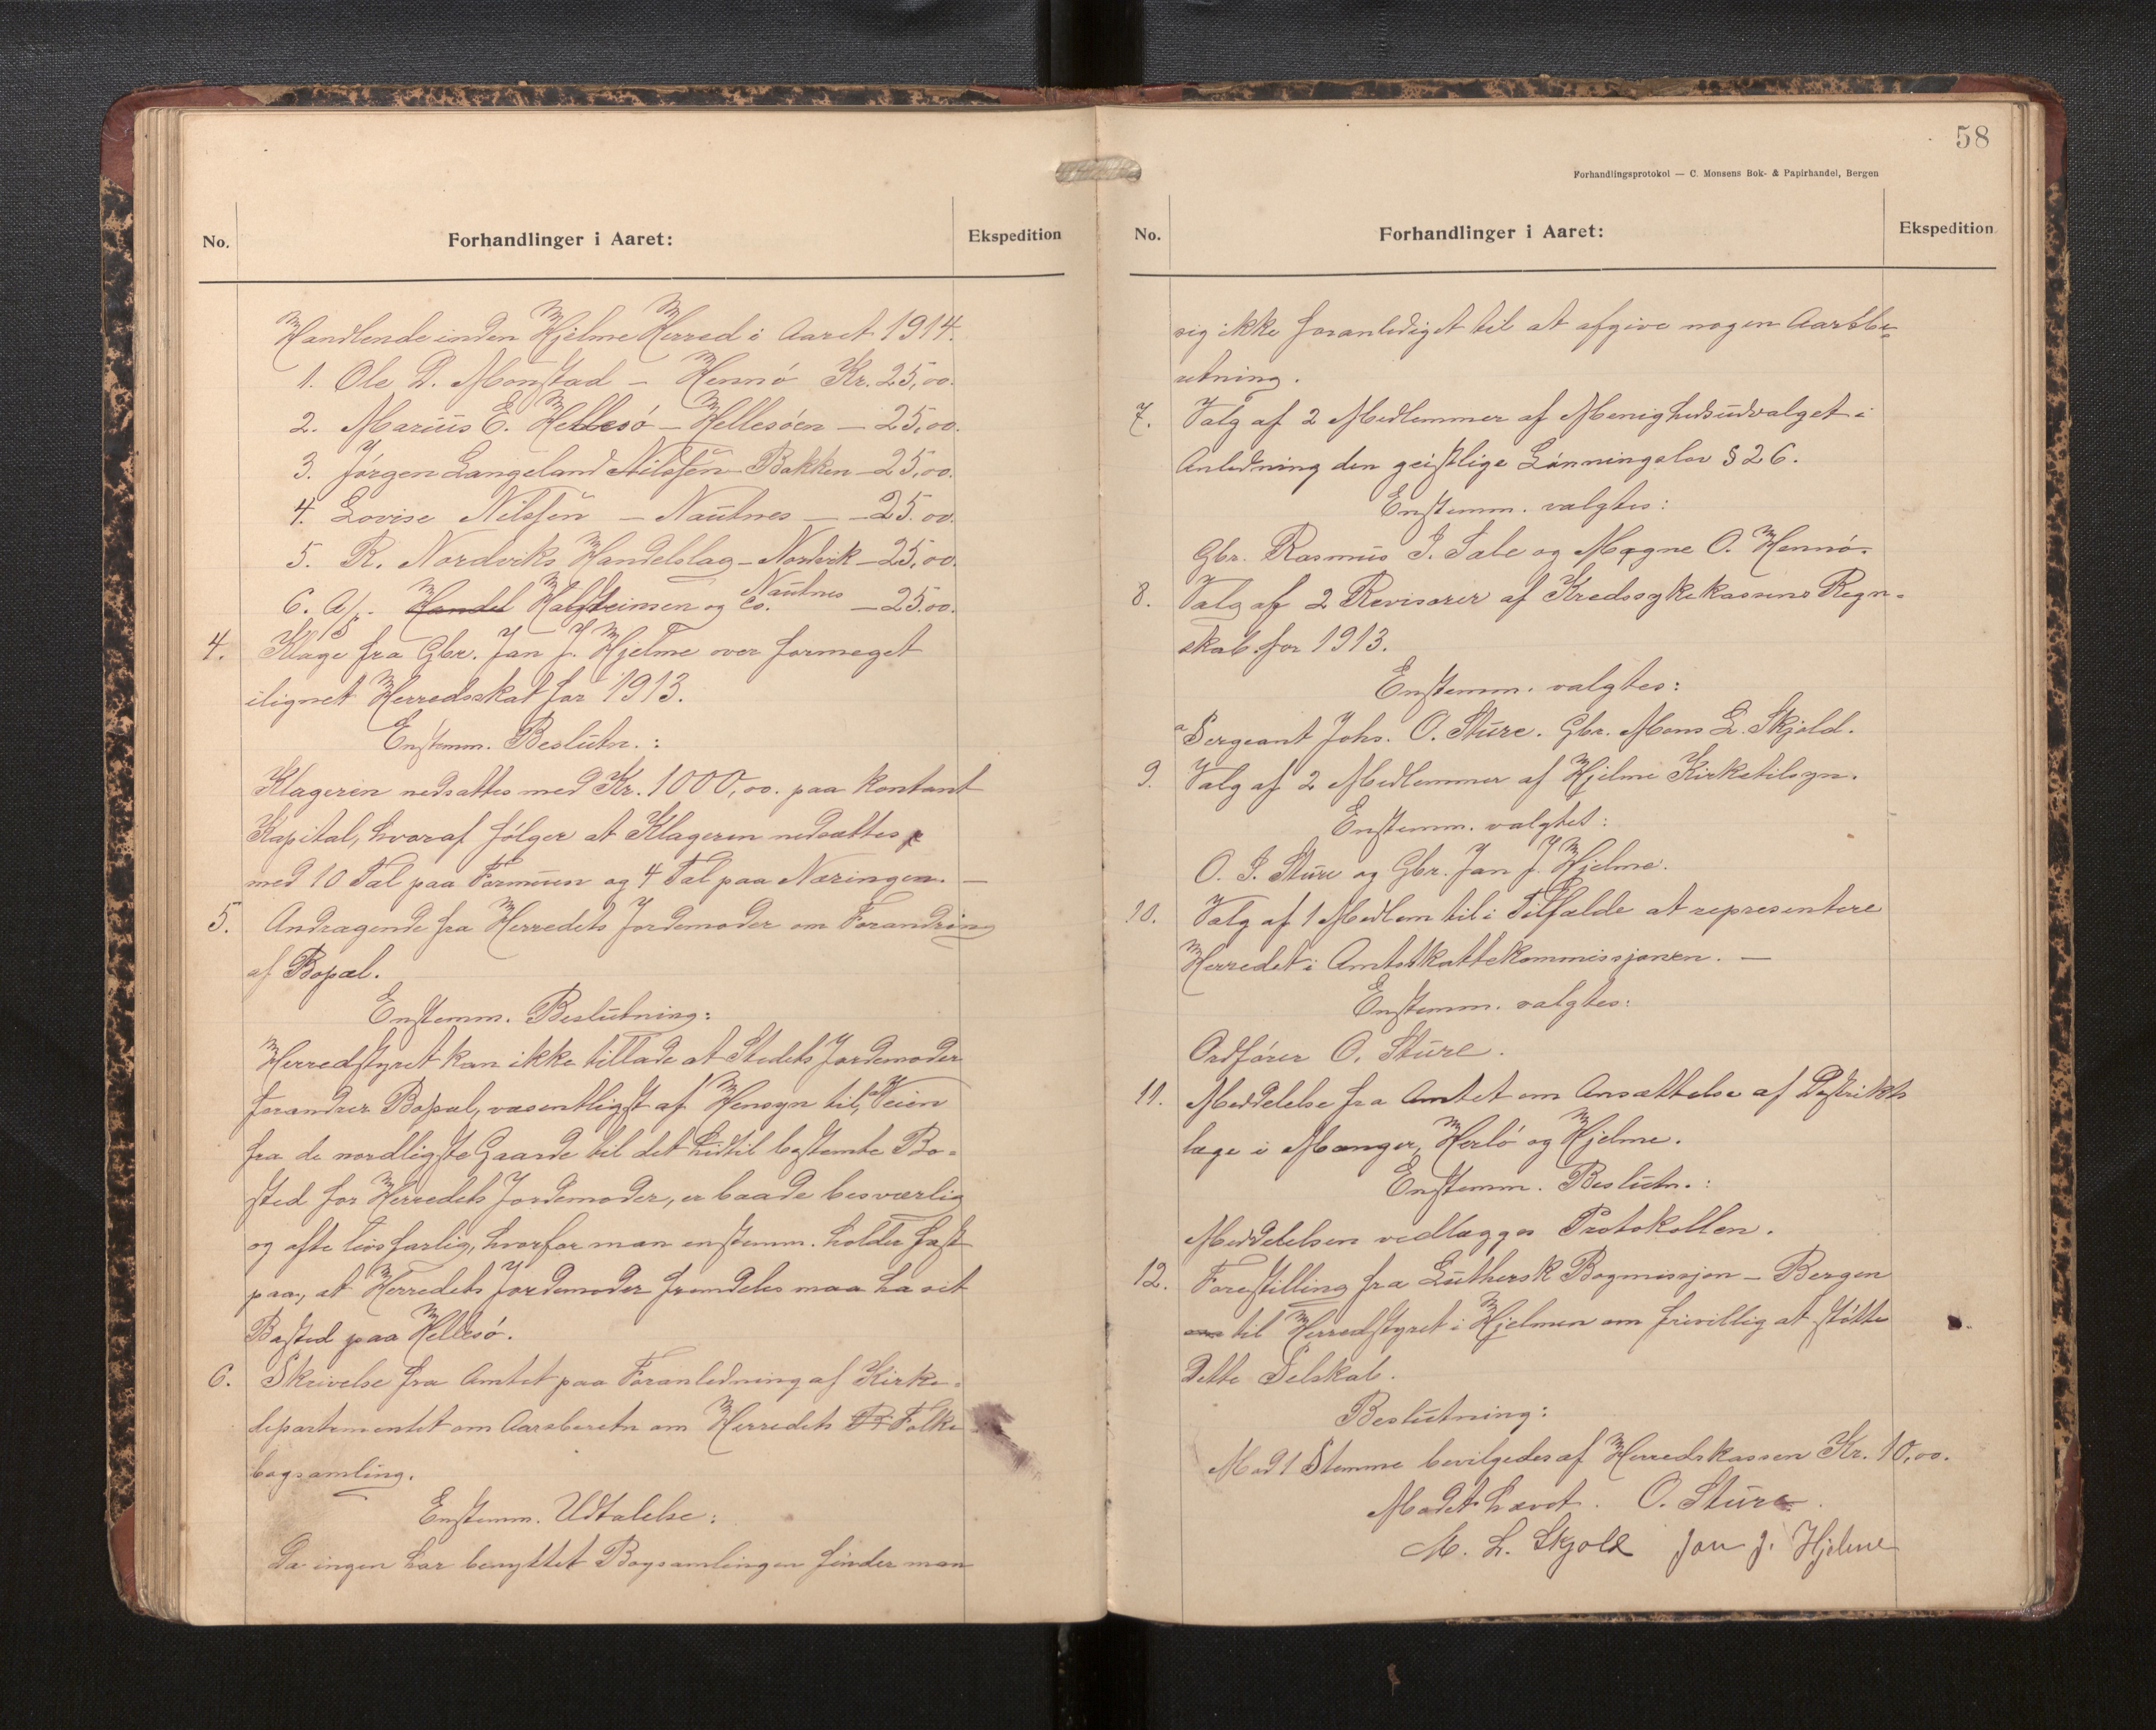 No.
Forhandlinger i Aaret:
Ekspedition
Handlende inden Hjelme Herred i Aaret 1914.
1. Ole D. Monstad – Hennø Kr. 25,00.
2. Marius E. Hellesø – Hellesøen – 25,00.
3. Jørgen Langeland Nilssen Bakken – 25,00.
4. Lovise Nilssen – Nautnes – – 25.00.
5. R. Nordviks Handelslag – Nordvik – 25,00.
6. A/s. Handel Halsteinsen og Co. Nautnes – 25.00.
4. Klage fra Gbr. Jan J. Hjelme over formeget
ilignet Herredsskat for 1913.
Enstemm. Beslutn.:
Klageren nedsattes med Kr. 1000,00. paa kontant
Kapital, hvoraf følger at Klageren nedsættes
med 10 Tal paa Formuen og 4 Tal paa Næringen. –
5. Andragende fra Herredets Jordemoder om Forandring
af Bopæl.
Enstemm. Beslutning:
Herredstyret kan ikke tillade at Stedets Jordemoder
forandrer Bopæl, væsentligst af Hensyn til, at Veien
fra de nordligste Gaarde til det hidtil bestemte Bo-
sted for Herredets Jordemoder, er baade besværlig
og ofte livsfarlig, hvorfor man enstemm. holder fast
paa, at Herredets Jordemoder fremdeles maa ha sit
Bosted paa Hellesø.
6. Skrivelse fra Amtet paa Foranledning af Kirke-
departementet om Aarsberetn om Herredets Folke
bogsamling.
Enstemm. Udtalelse:
Da ingen har benyttet Bogsamlingen finder man
58
Forhandlingsprotokol — C. Monsens Bok- & Papirhandel, Bergen
No.
Forhandlinger i Aaret:
Ekspedition
sig ikke foranlediget til at afgive nogen Aarsbe-
retning.
7. Valg af 2 Medlemmer af Menighedsudvalget i
Anledning den geistlige Lønningslov § 26.
Enstemm. valgtes:
Gbr. Rasmus I. Sale og Mogne O. Hennø.
8. Valg af 2 Revisorer af Kredssykekassens Regn-
skab for 1913.
Enstemm. valgtes:
Sergeant Johs. O. Sture. Gbr. Mons L. Skjold.
9. Valg af 2 Medlemmer af Hjelme Kirketilsyn.
Enstemm. valgtes:
O. I. Sture og Gbr. Jan J. Hjelme.
10. Valg af 1 Medlem til i Tilfælde at representere
Herredet i Amtsskattekommissjonen. –
Enstemm. valgtes:
Ordfører O. Sture.
11. Meddelelse fra Amtet om Ansættelse af Distrikts
læge i Manger, Herlø og Hjelme.
Enstemm. Beslutn.:
Meddelelsen vedlægges Protokollen.
12. Forestilling fra Luthersk Bogmissjon – Bergen
til Herredstyret i Hjelmen om frivillig at støtte
dette Selskab.
Beslutning:
Mod 1 Stemme bevilgedes af Herredskassen Kr. 10,00.
Mødet hævet. O. Sture.
M. L. Skjold Jan J. Hjelme